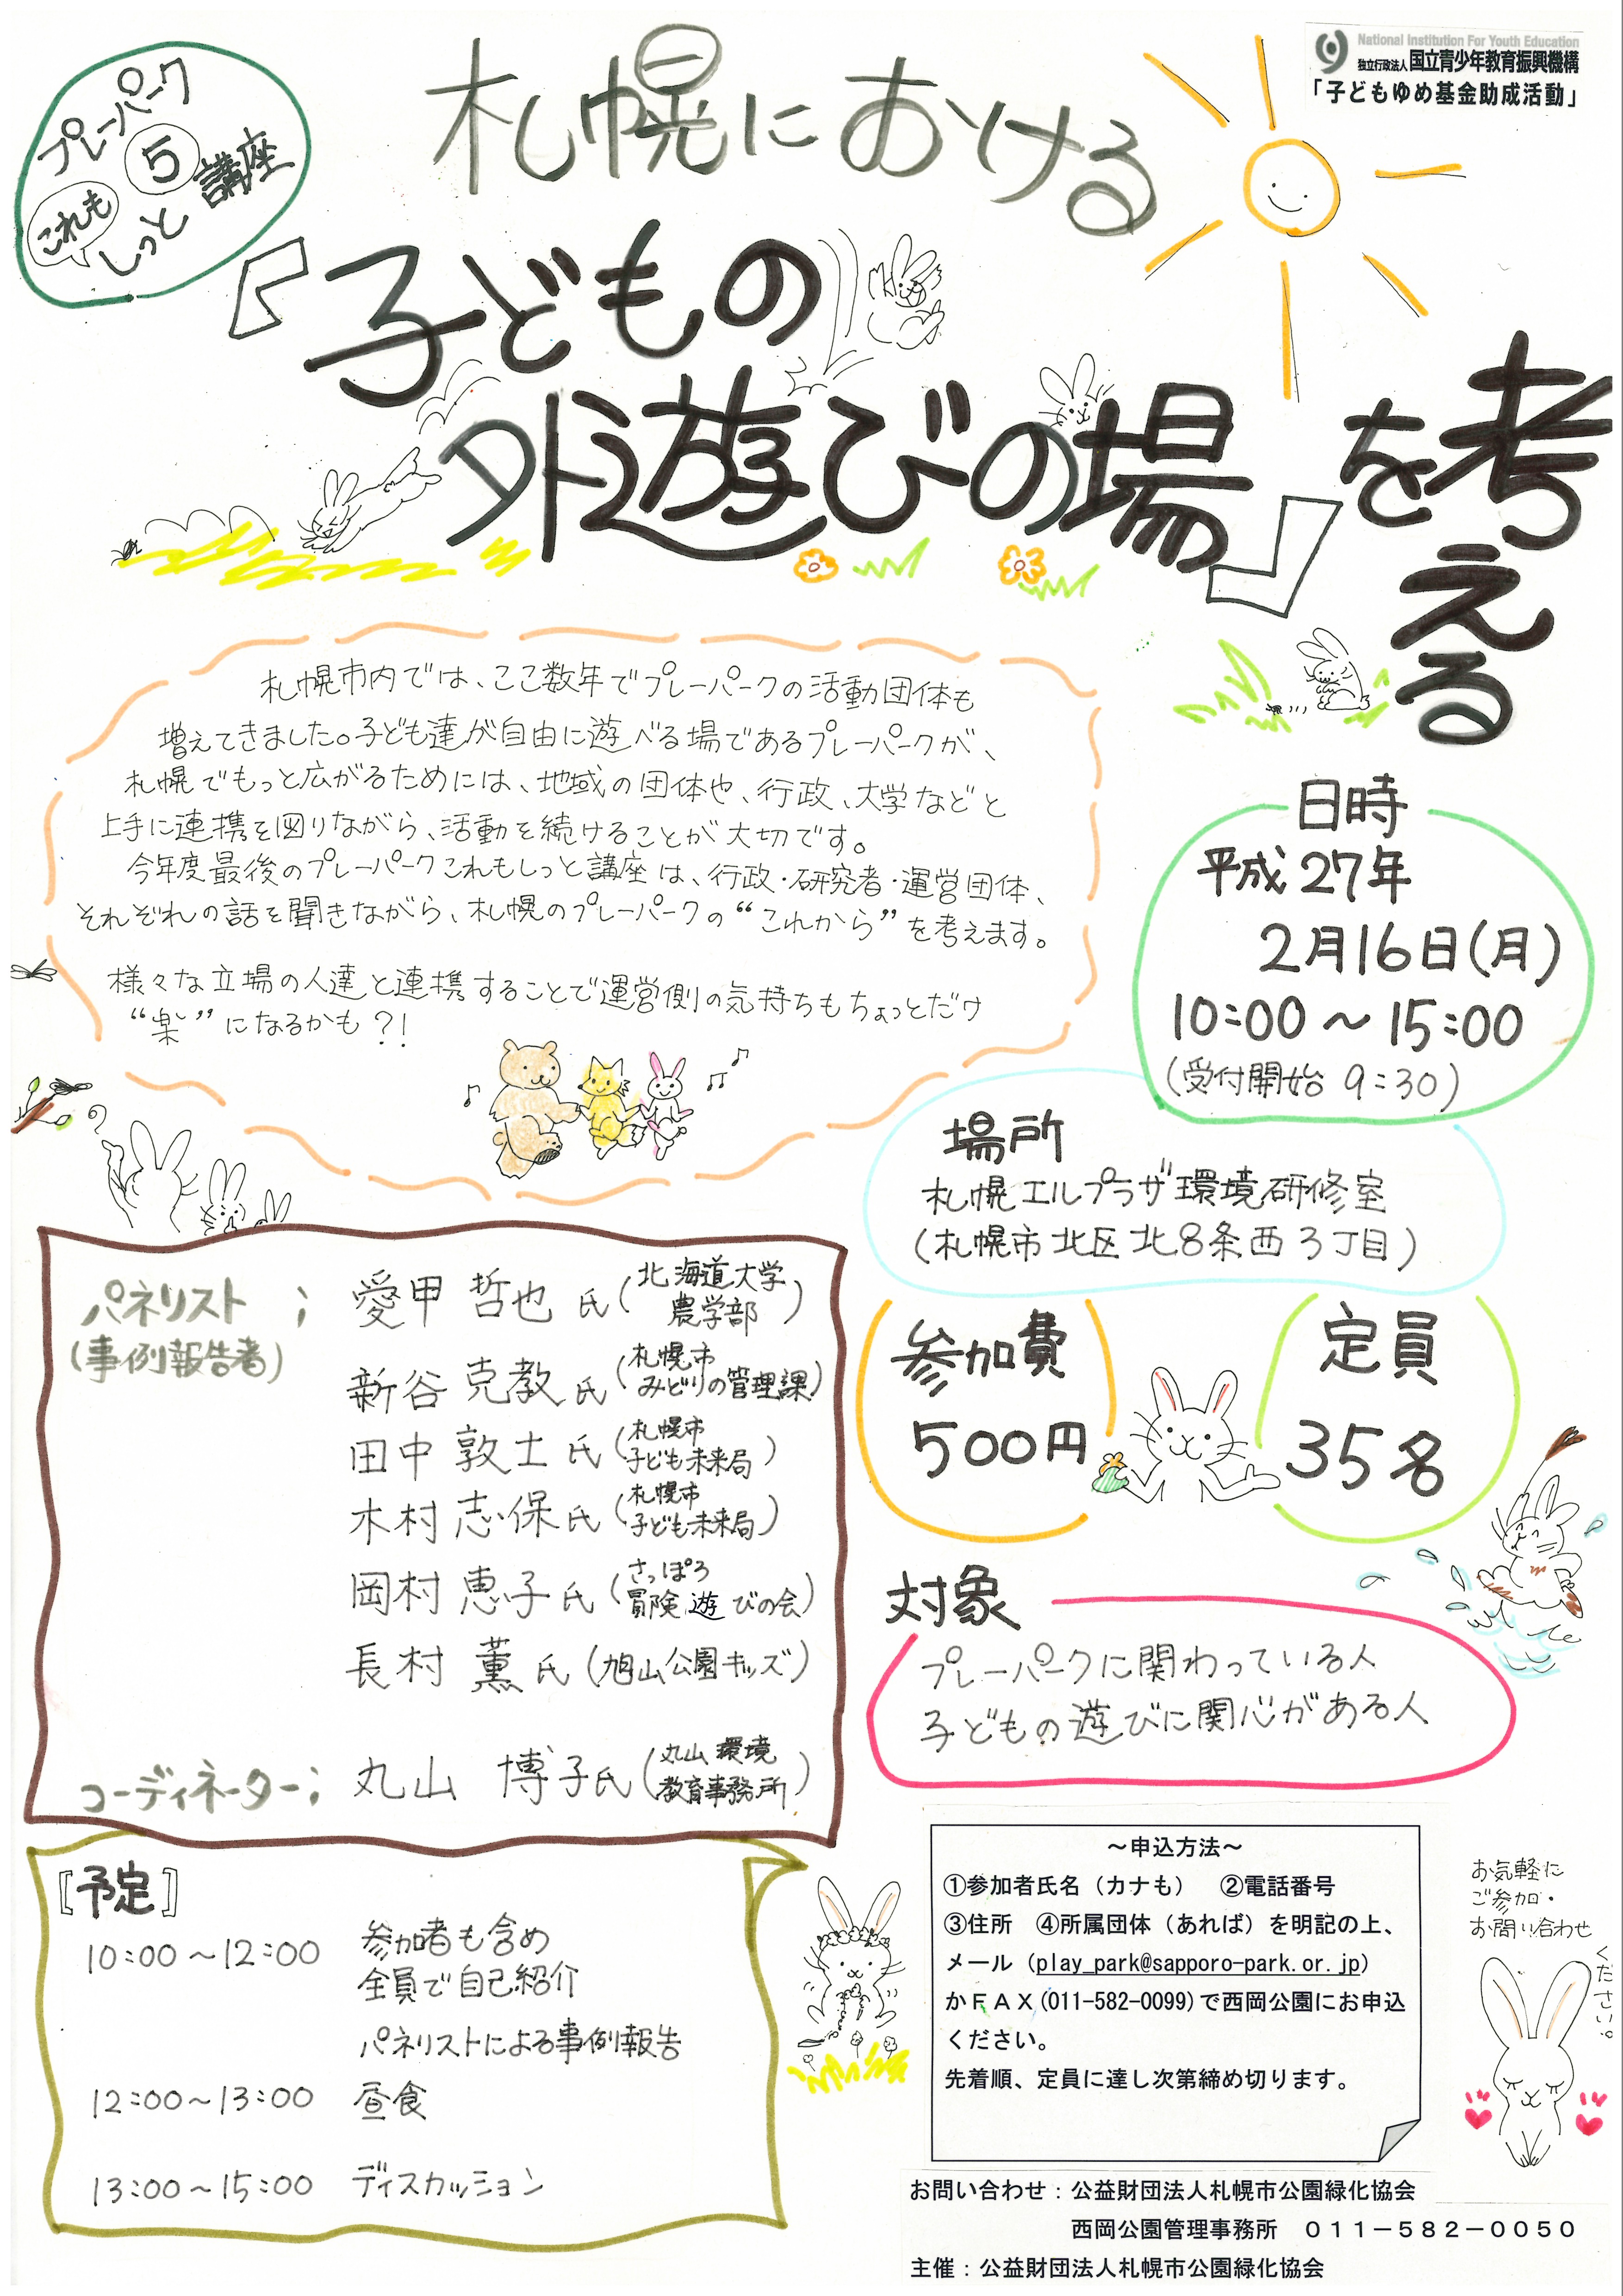 プレーパーク
これも
しっと
5
講座
National Institution For Youth Education
独立行政法人国立青少年教育振興機構
「子どもゆめ基金助成活動」
札幌における
『子どもの
外遊びの場』を考える
札幌市内では、ここ数年でプレーパークの活動団体も
増えてきました。子ども達が自由に遊べる場であるプレーパークが、
札幌でもっと広がるためには、地域の団体や、行政、大学などと
上手に連携を図りながら、活動を続けることが大切です。
今年度最後のプレーパークこれもしっと講座は、行政・研究者・運営団体、
それぞれの話を聞きながら、札幌のプレーパークの“これから”を考えます。
様々な立場の人達と連携することで運営側の気持ちもちょっとだけ
“楽”になるかも?!
日時
平成27年
2月16日(月)
10:00～15:00
(受付開始 9:30)
場所
札幌エルプラザ環境研修室
(札幌市北区北8条西3丁目)
参加費
500円
定員
35名
対象
プレーパークに関わっている人
子どもの遊びに関心がある人
パネリスト ;
(事例報告者)
愛甲 哲也 氏(北海道大学
農学部)
新谷 克教 氏(札幌市
みどりの管理課)
田中 敦士 氏(札幌市
子ども未来局)
木村 志保 氏(札幌市
子ども未来局)
岡村 恵子 氏(さっぽろ
冒険遊びの会)
長村 薫 氏(旭山公園キッズ)
コーディネーター; 丸山 博子氏(丸山環境
教育事務所)
[予定]
10:00～12:00 参加者も含め
全員で自己紹介
パネリストによる事例報告
12:00～13:00 昼食
13:00～15:00 ディスカッション
～申込方法～
①参加者氏名（カナも） ②電話番号
③住所 ④所属団体（あれば）を明記の上、
メール（play_park@sapporo-park.or.jp）
かＦＡＸ(011-582-0099)で西岡公園にお申込
ください。
先着順、定員に達し次第締め切ります。
お気軽に
ご参加・
お問い合わせ
ください。
お問い合わせ：公益財団法人札幌市公園緑化協会
西岡公園管理事務所 ０１１－５８２－００５０
主催：公益財団法人札幌市公園緑化協会